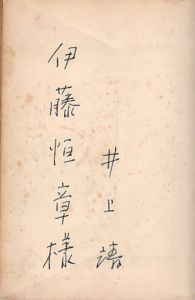 伊藤恒章様
井上靖